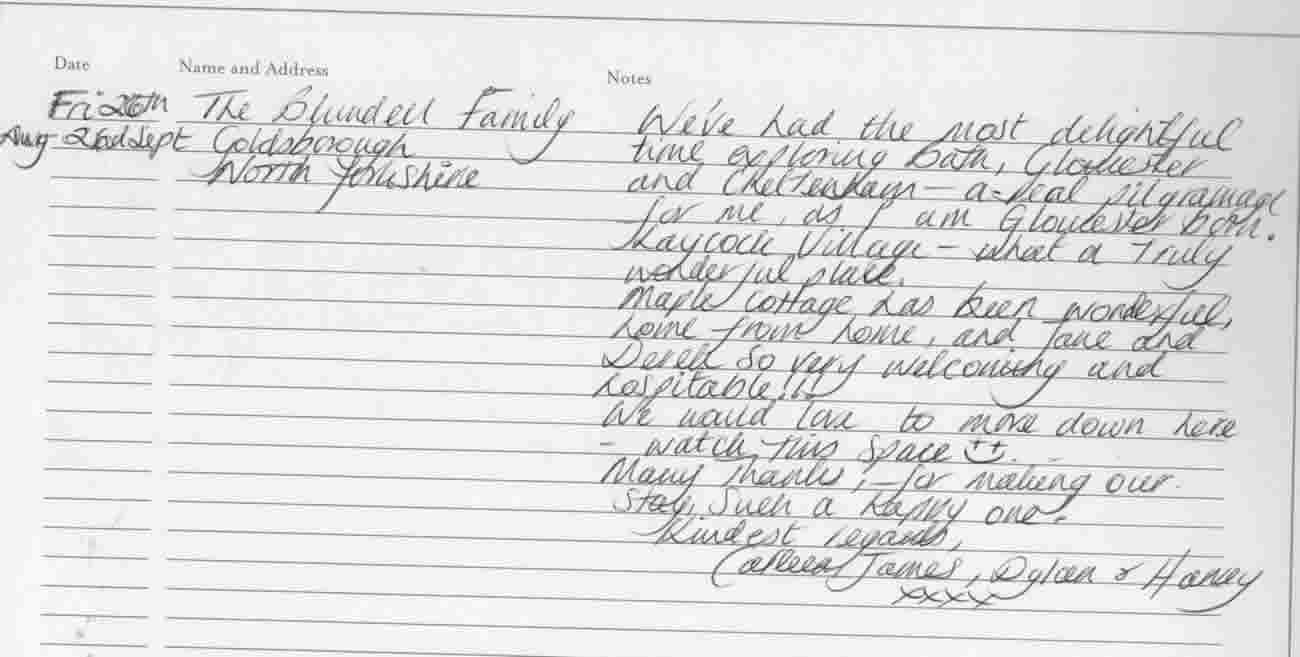 Date Name and Address Notes
Fri 26th The Blundell Family
Aug 2nd Sept Goldsborough
North Yorkshire
We've had the most delightful
time exploring Bath, Gloucester
and Cheltenham - a real pilgramage
for me, as I am Gloucester born.
Laycock Village - what a truly
wonderful place.
Maple cottage has been wonderful,
home from home, and Jane and
Derek so very welcoming and
hospitable!!!
We would love to move down here
- watch this space
Many thanks, for making our
stay, such a happy one.
Kindest regards,
James, Dylan & Harvey
xxxx